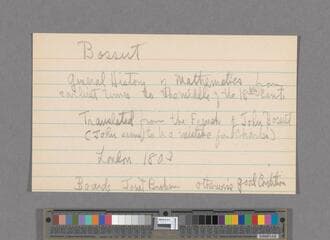 Bossut
General History of Mathematics from
earliest times to the middle of the 18th Cent
Translated from the French of John Bossut
(John seems to be a mistake for Charles)
London 1803
Boards Joint Broken otherwise good Condition